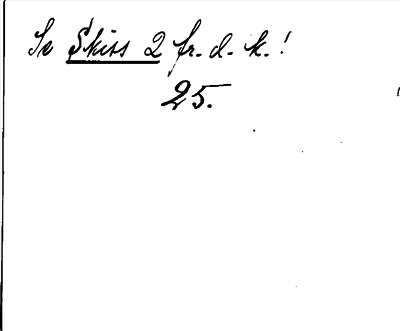 Se Skiss 2 fr. d. k.!
25.